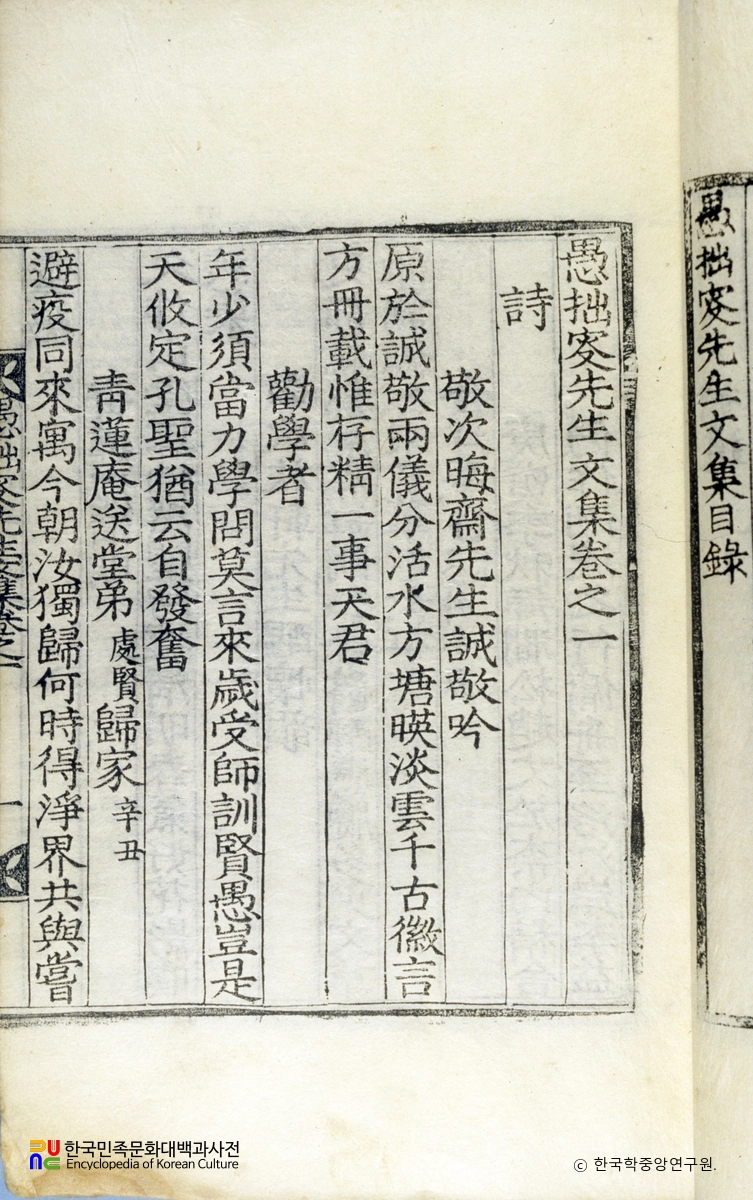 愚拙窩先生文集目錄
愚拙窩先生文集卷之一
詩
敬次晦齋先生誠敬吟
原於誠敬兩儀分活水方塘暎淡雲千古徽言
方冊載惟存精一事天君
勸學者
年少須當力學問莫言來歲受師訓賢愚豈是
天攸定孔聖猶云自發奮
靑蓮庵送堂弟處賢歸家辛丑
避疫同來寓今朝汝獨歸何時得淨界共與嘗
愚拙窩先生文集卷之一 一
한국민족문화대백과사전
Encyclopedia of Korean Culture
ⓒ 한국학중앙연구원.